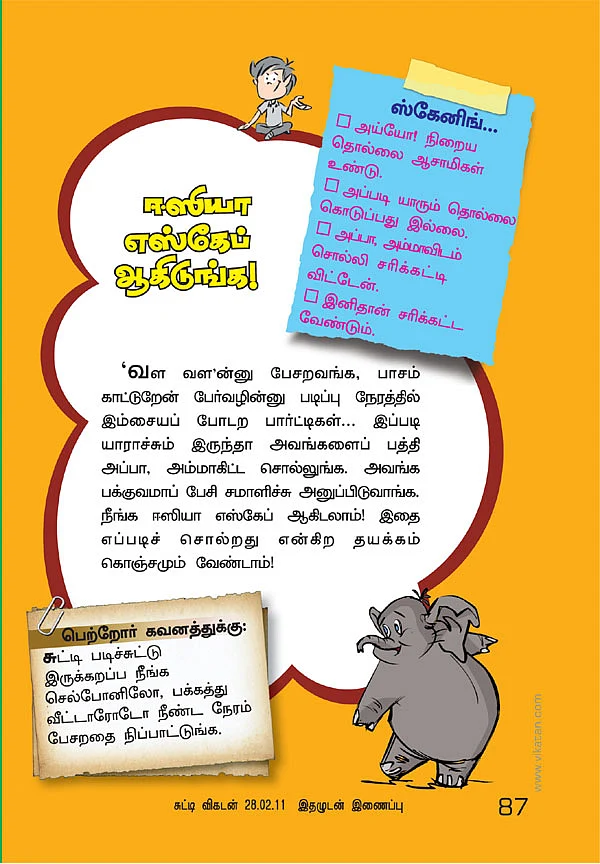 ஸ்கேனிங்...
☐ அய்யோ! நிறைய
தொல்லை ஆசாமிகள்
உண்டு.
☐ அப்படி யாரும் தொல்லை
கொடுப்பது இல்லை.
☐ அப்பா, அம்மாவிடம்
சொல்லி சரிக்கட்டி
விட்டேன்.
☐ இனிதான் சரிக்கட்ட
வேண்டும்.
ஈஸியா
எஸ்கேப்
ஆகிடுங்க!
‘வள வள’ன்னு பேசறவங்க, பாசம்
காட்டுறேன் பேர்வழின்னு படிப்பு நேரத்தில்
இம்சையப் போடற பார்ட்டிகள்... இப்படி
யாராச்சும் இருந்தா அவங்களைப் பத்தி
அப்பா, அம்மாகிட்ட சொல்லுங்க. அவங்க
பக்குவமாப் பேசி சமாளிச்சு அனுப்பிடுவாங்க.
நீங்க ஈஸியா எஸ்கேப் ஆகிடலாம்! இதை
எப்படிச் சொல்றது என்கிற தயக்கம்
கொஞ்சமும் வேண்டாம்!
பெற்றோர் கவனத்துக்கு:
சுட்டி படிச்சுட்டு
இருக்கறப்ப நீங்க
செல்போனிலோ, பக்கத்து
வீட்டாரோடோ நீண்ட நேரம்
பேசறதை நிப்பாட்டுங்க.
www.vikatan.com
சுட்டி விகடன் 28.02.11 இதழுடன் இணைப்பு
87